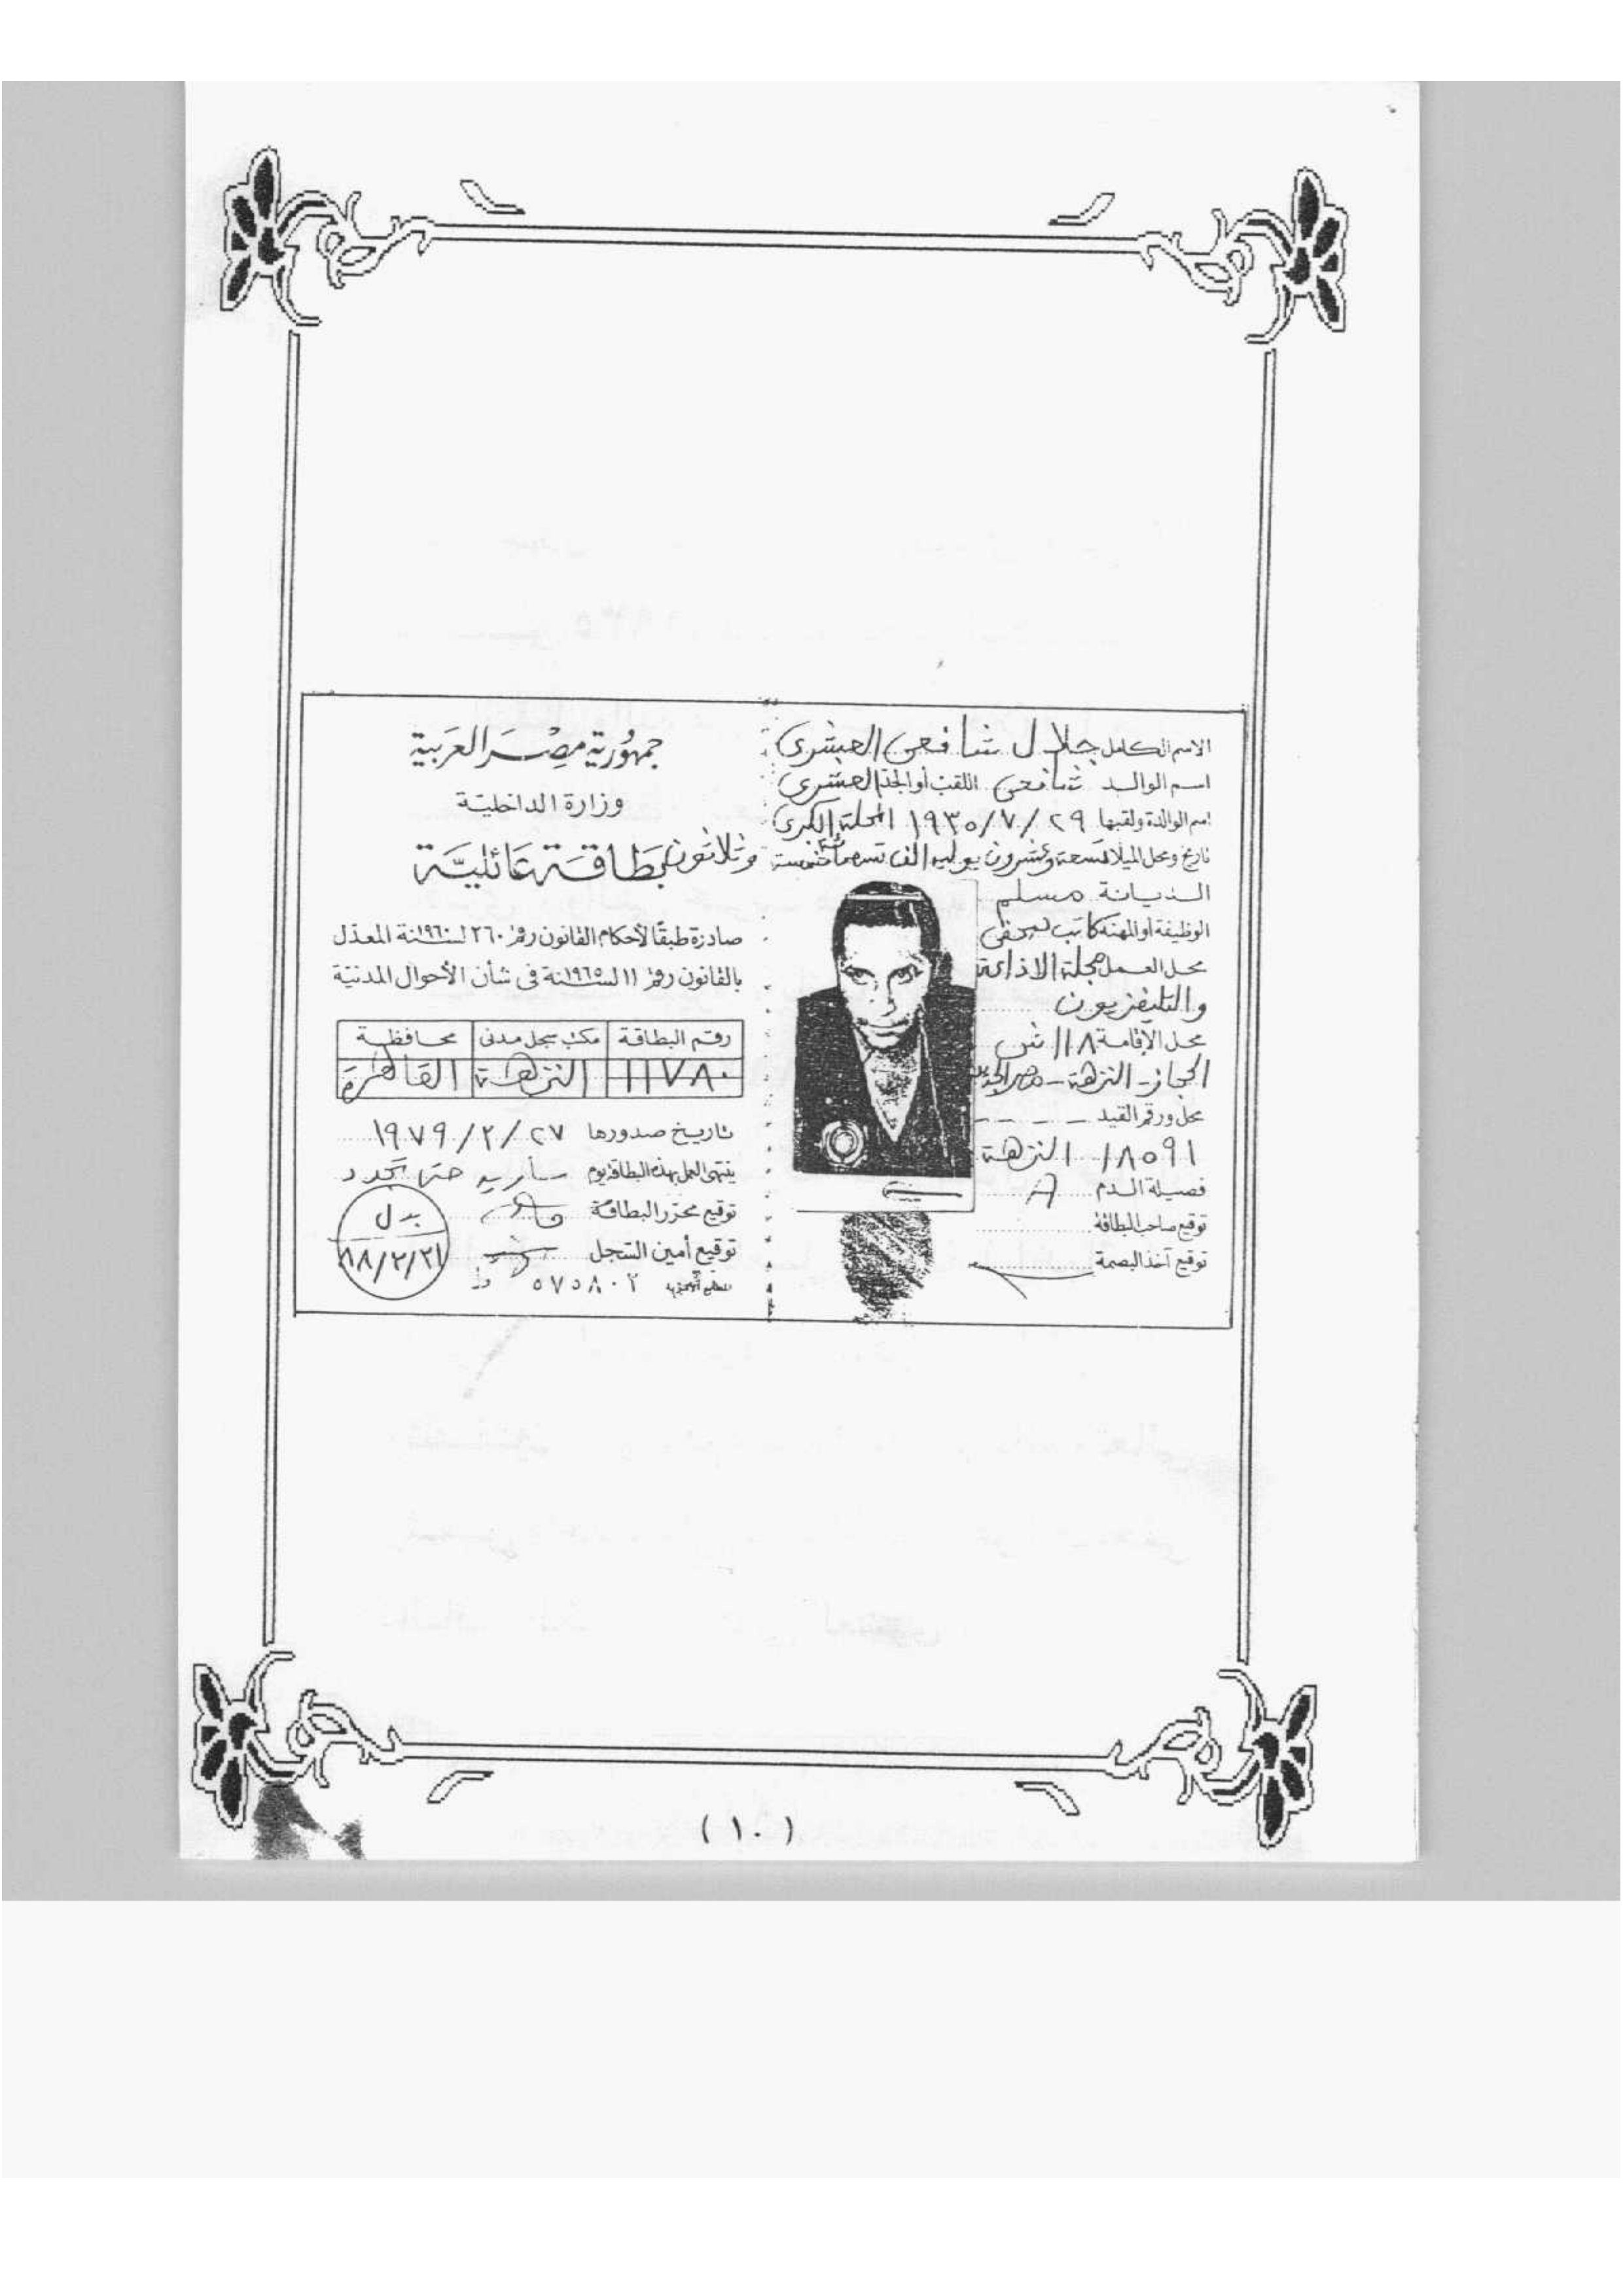 الاسم الكامل جلال شافعى العشرى
اسم الوالد شافعى اللقب أو الجد العشرى
اسم الوالدة ولقبها ٢٩ / ٧ / ١٩٣٥ المحلة الكبرى
تاريخ ومحل الميلاد تسعة وعشرون يوليه الف تسعمائة خمسة وثلاثون
الديانة مسلم
الوظيفة أو المهنة كاتب صحفى
محل العمل مجلة الاذاعة
والتليفزيون
محل الإقامة ١١٨ ش
الحجاز - النزهة - مصر الجديدة
محل ورقم القيد
١٨٥٩١ / النزهة
فصيلة الدم A
توقيع صاحب البطاقة
توقيع آخذ البصمة
جمهورية مصر العربية
وزارة الداخلية
بطاقة عائلية
صادرة طبقًا لأحكام القانون رقم ٢٦٠ لسنة ١٩٦٠ المعدل
بالقانون رقم ١١ لسنة ١٩٦٥ فى شأن الأحوال المدنية
رقم البطاقة مكتب سجل مدنى محافظة
١١٧٨٠ النزهة القاهرة
تاريخ صدورها ٢٧ / ٢ / ١٩٧٩
ينتهى العمل بهذه البطاقة يوم سارية حتى تجدد
توقيع محرر البطاقة
توقيع أمين السجل
بدل
٨٨/٢/٢١
٥٧٥٨٠٢ ط
( ١٠ )